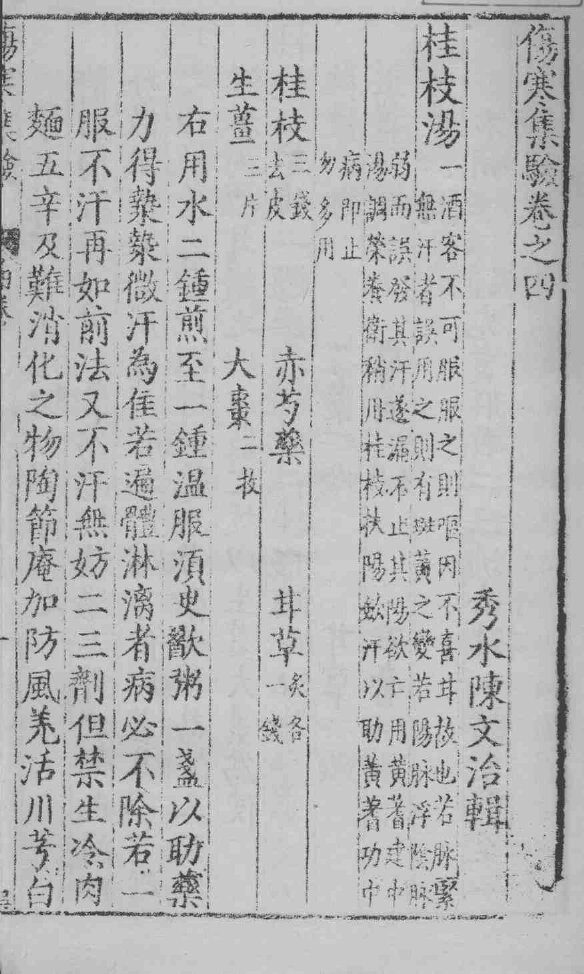 傷寒集驗卷之四
秀水陳文治輯
桂枝湯
一酒客不可服服之則嘔因不喜甘故也若脉緊
無汗者誤用之則有斑黃之變若陽脉浮陰脉
弱而誤發其汗遂漏不止其陽欲亡用黃蓍建中
湯調榮養衛稍用桂枝扶陽斂汗以助黃蓍功中
病即止
勿多用
桂枝三錢去皮 赤芍藥 甘草炙各一錢
生薑三片 大棗二枚
右用水二鍾煎至一鍾溫服須臾歠粥一盞以助藥
力得漐漐微汗為佳若遍體淋漓者病必不除若一
服不汗再如前法又不汗無妨二三劑但禁生冷肉
麵五辛及難消化之物陶節庵加防風羗活川芎白
傷寒集驗 四卷 一